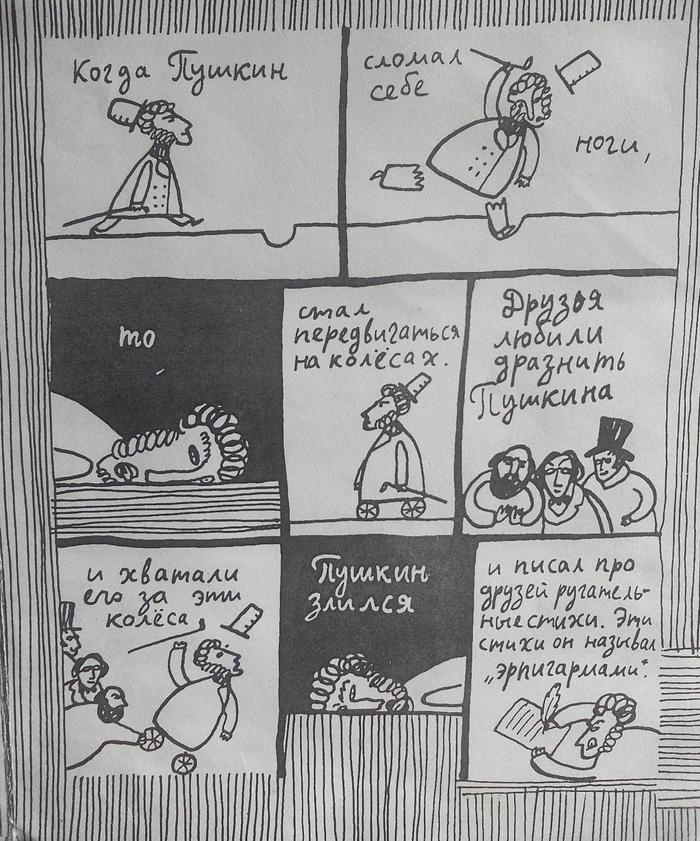 Когда Пушкин
сломал
себе
ноги,
то
стал
передвигаться
на колёсах.
Друзья
любили
дразнить
Пушкина
и хватали
его за эти
колёса,
Пушкин
злился
и писал про
друзей ругатель-
ные стихи. Эти
стихи он называл
„эрпигармами“.